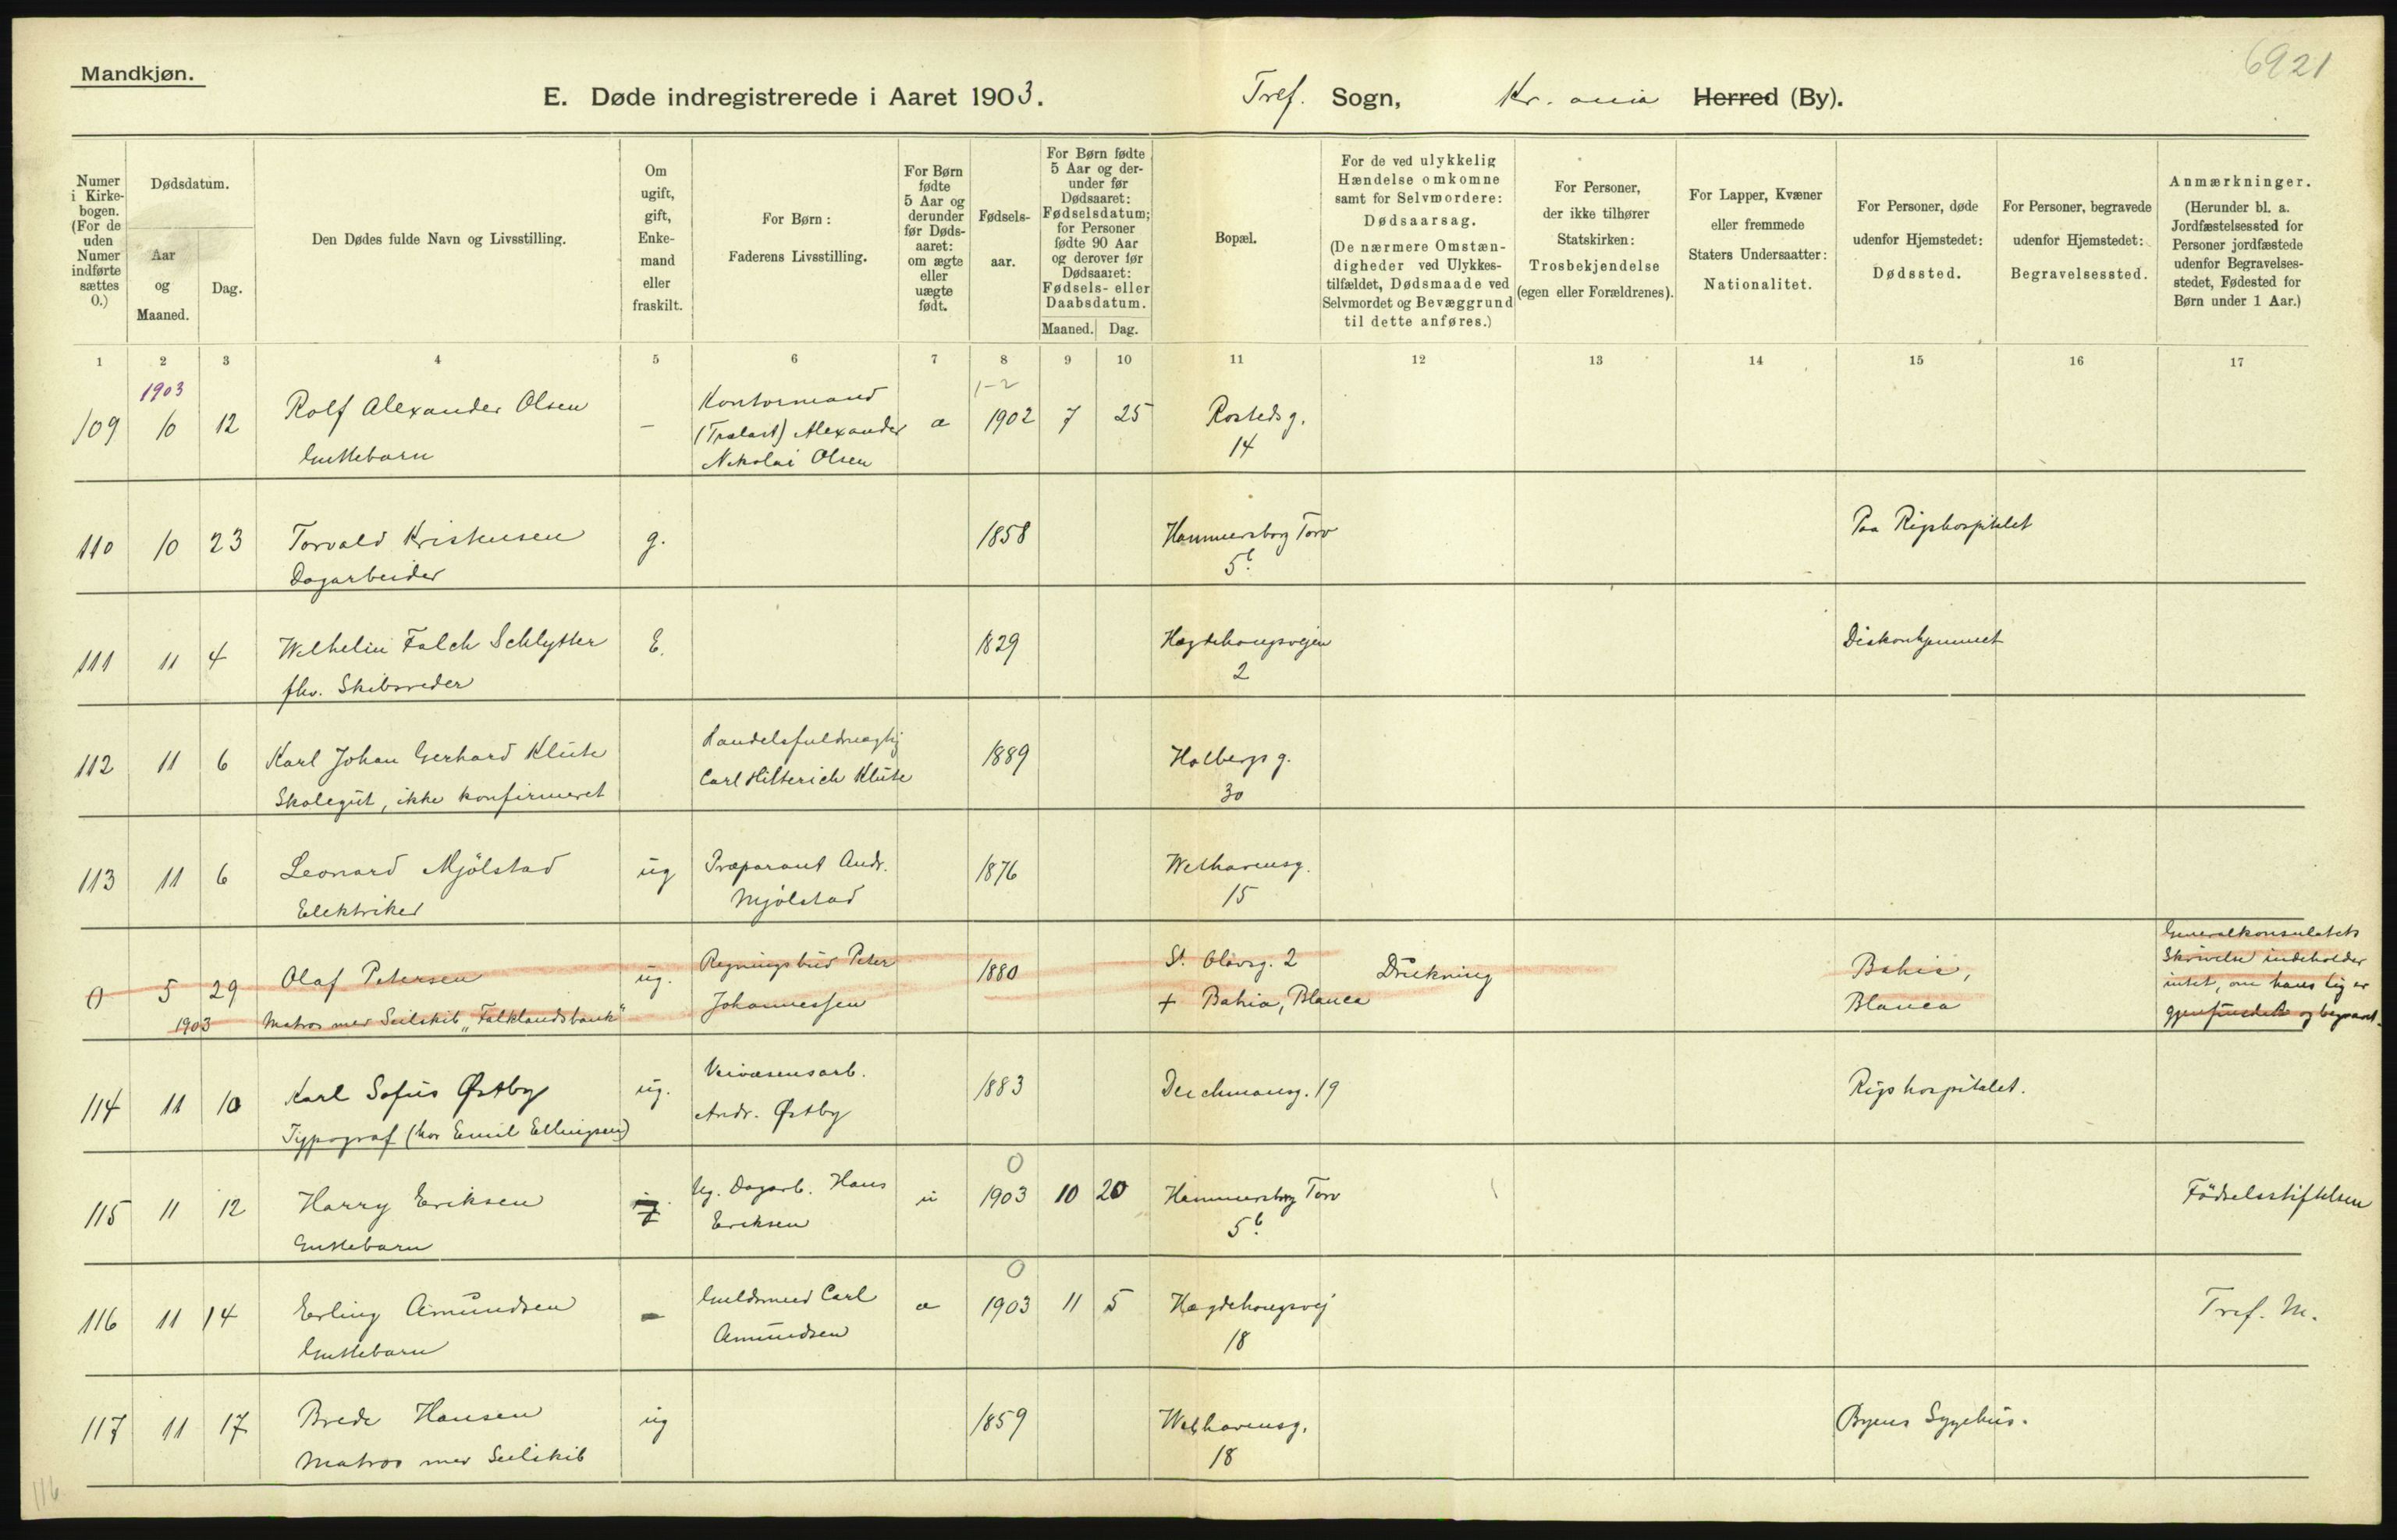 Mandkjøn.
6921
E. Døde indregistrerede i Aaret 1903.
Tref. Sogn, Kr. ania Herred (By).
Numer i Kirkebogen. (For de uden Numer indførte sættes 0.)
Dødsdatum.
Aar og Maaned.
Dag.
Den Dødes fulde Navn og Livsstilling.
Om ugift, gift, Enkemand eller fraskilt.
For Børn: Faderens Livsstilling.
For Børn fødte 5 Aar og derunder før Dødsaaret: om ægte eller uægte født.
Fødselsaar.
For Børn fødte 5 Aar og derunder før Dødsaaret: Fødselsdatum; for Personer fødte 90 Aar og derover før Dødsaaret: Fødsels- eller Daabsdatum.
Maaned. Dag.
Bopæl.
For de ved ulykkelig Hændelse omkomne samt for Selvmordere: Dødsaarsag. (De nærmere Omstændigheder ved Ulykkestilfældet, Dødsmaade ved Selvmordet og Bevæggrund til dette anføres.)
For Personer, der ikke tilhører Statskirken: Trosbekjendelse (egen eller Forældrenes).
For Lapper, Kvæner eller fremmede Staters Undersaatter: Nationalitet.
For Personer, døde udenfor Hjemstedet: Dødssted.
For Personer, begravede udenfor Hjemstedet: Begravelsessted.
Anmærkninger. (Herunder bl. a. Jordfæstelsessted for Personer jordfæstede udenfor Begravelsesstedet, Fødested for Børn under 1 Aar.)
1 2 3 4 5 6 7 8 9 10 11 12 13 14 15 16 17
1903 1-2
109 10 12 Rolf Alexander Olsen - Kontormand a 1902 7 25 Rosteds g.
Guttebarn (Trælast) Alexander 14
Nikolai Olsen
110 10 23 Torvald Kristensen g. 1858 Hammersborg Torv Paa Rigshospitalet
Dagarbeider 5b
111 11 4 Wilhelm Falch Schlytter E. 1829 Hægdehaugsvejen Diakonhjemmet
fhv. Skibsreder 2
112 11 6 Karl Johan Gerhard Klüte Handelsfuldmægtig 1889 Holbergs g.
Skolegut, ikke konfirmeret Carl Hitterich Klüte 30
113 11 6 Leonard Mjölstad ug Præparant Andr. 1876 Welhavensg.
Elektriker Mjölstad 15
0 5 29 Olaf Petersen ug. Regningsbud Peter 1880 St. Olavsg. 2 Drukning Bahia, Generalkonsulatets
1903 Matros med Seilskib "Falklandsbank" Johannessen + Bahia, Blanca Blanca Skrivelse indeholder
intet, om hans lig er
gjenfundet og begravet.
114 11 10 Karl Sofus Østby ug. Veivæsensarb. 1883 Deichmansg. 19 Rigshospitalet.
Typograf (hos Emil Ellingsen) Andr. Østby
0
115 11 12 Harry Eriksen Ug. Dagarb. Hans u 1903 10 20 Hammersborg Torv Födselsstiftelsen
Guttebarn Eriksen 5b
0
116 11 14 Erling Amundsen - Guldsmed Carl a 1903 11 5 Hægdehaugsvej Tref. M.
Guttebarn Amundsen 18
117 11 17 Brede Hansen ug 1859 Welhavensg. Byens Sygehus.
Matros med Seilskib 18
116